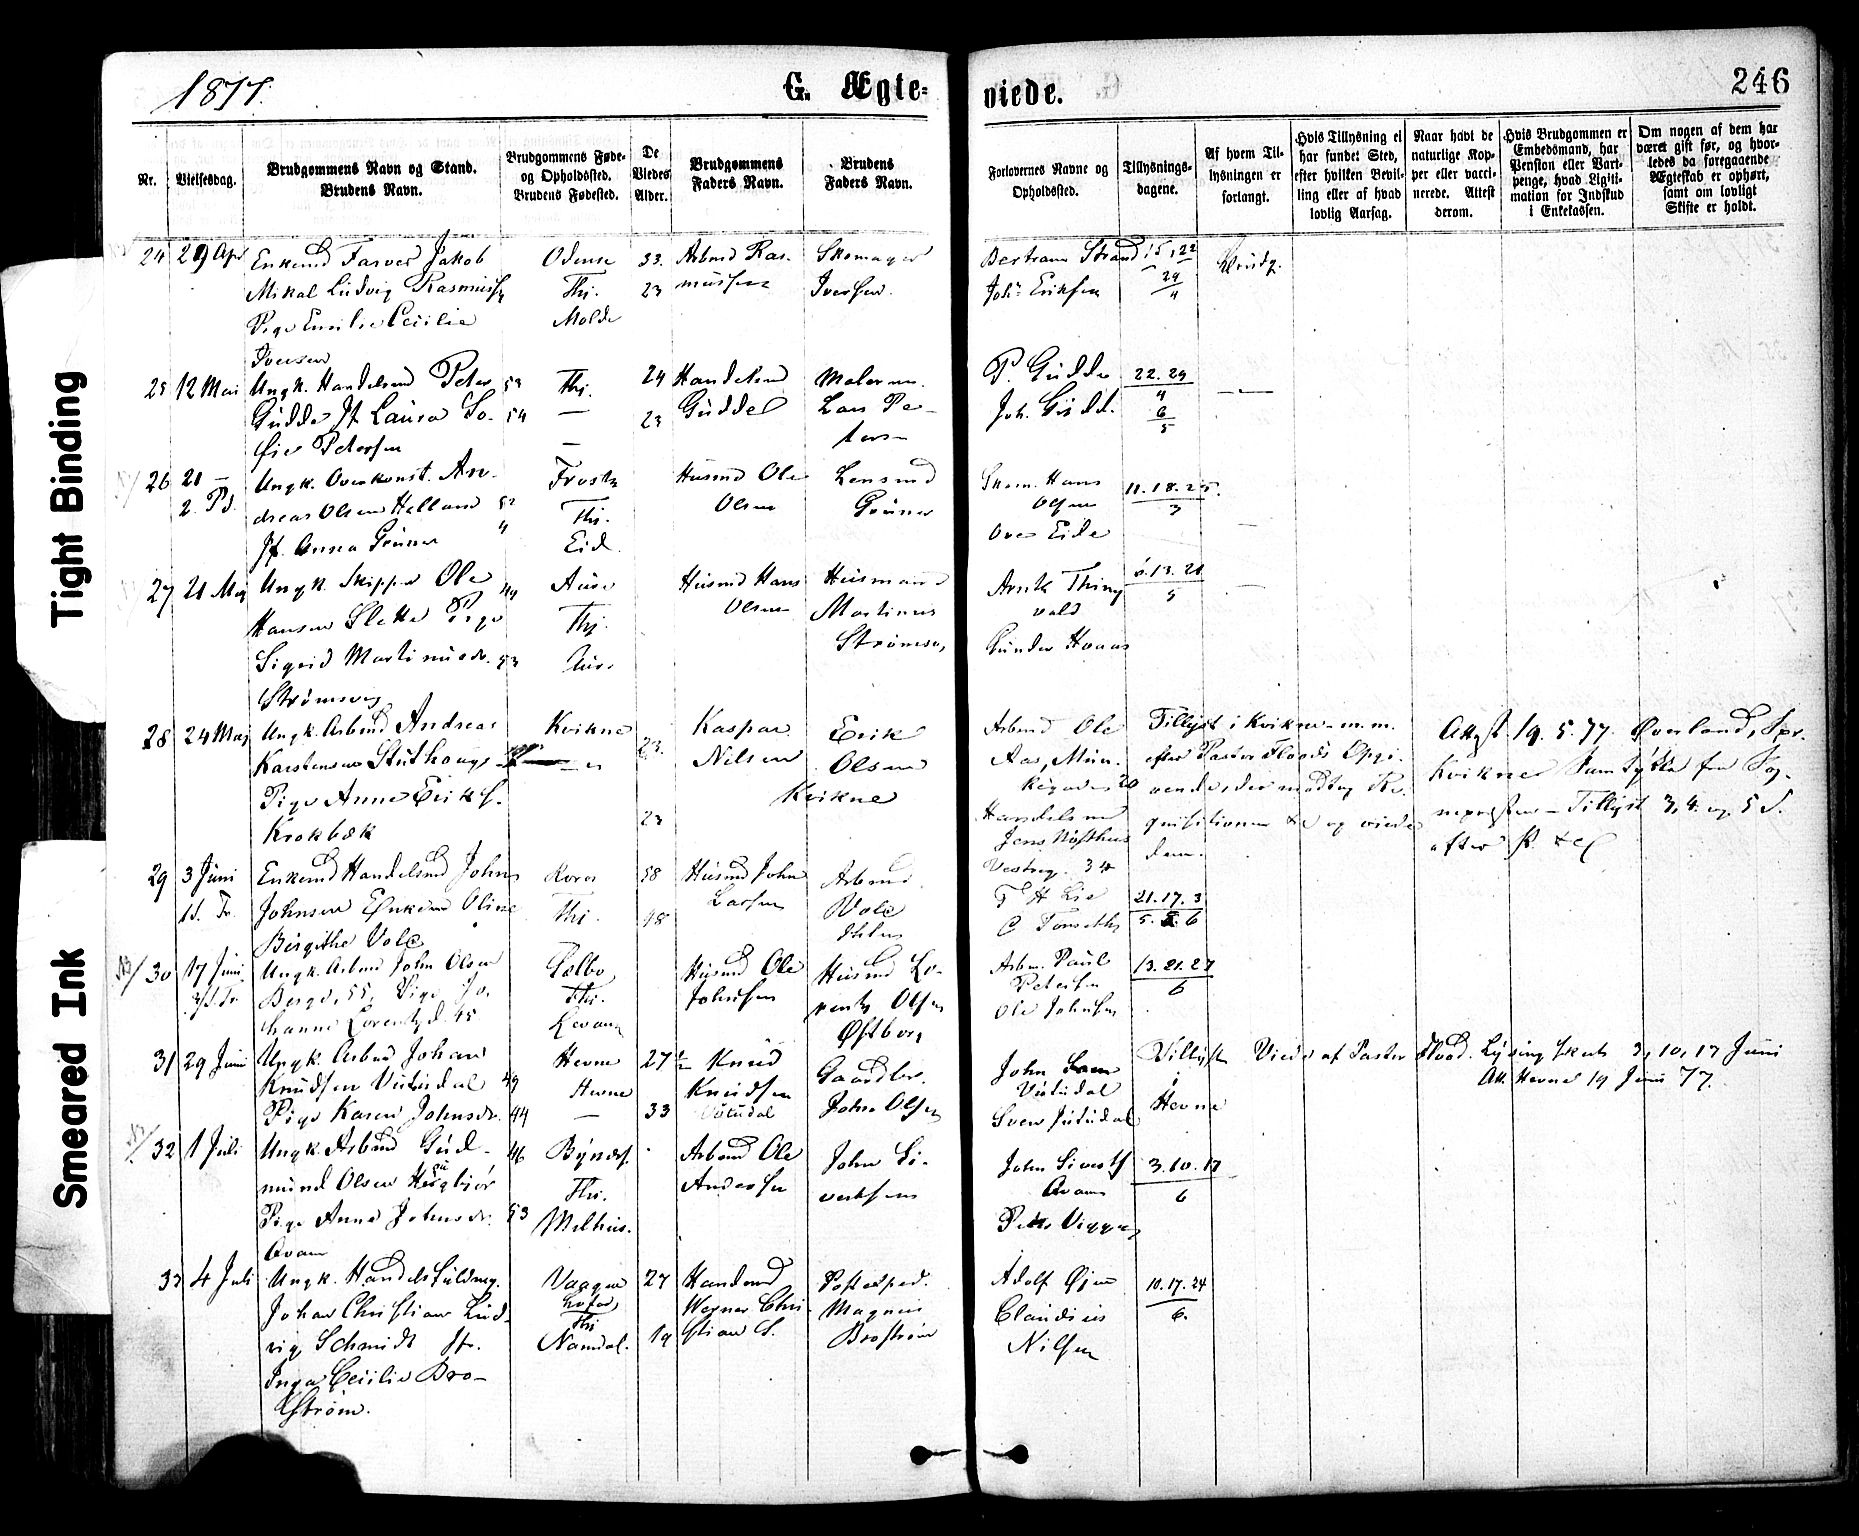 Tight Binding
Smeared Ink
1877.
G. Ægte-
viede.
246
Nr.
Vielsesdag.
Brudgommens Navn og Stand.
Brudens Navn.
Brudgommens Føde-
og Opholdssted.
Brudens Fødested.
De
Viedes
Alder.
Brudgommens
Faders Navn.
Brudens
Faders Navn.
Forlovernes Navne og
Opholdssted.
Tillysnings-
dagene.
Af hvem Til-
lysningen er
forlangt.
Hvis Tillysning ei
har fundet Sted,
efter hvilken Bevil-
ling eller af hvad
lovlig Aarsag.
Naar havt de
naturlige Kop-
per eller vacci-
nerede. Attest
derom.
Hvis Brudgommen er
Embedsmand, har
Pension eller Vart-
penge, hvad Ligiti-
mation for Indskud
i Enkekassen.
Om nogen af dem har
været gift før, og hvor-
ledes da foregaaende
Ægteskab er ophørt,
samt om lovligt
Skifte er holdt.
24 29 Apr
Enkemd Farver Jakob
Mikal Ludvig Rasmuss
Pige Emilie Cecilie
Iversen
Odense
Thj.
Molde
33.
23
Arbmd Ras-
mussen
Skomager
Iversen.
Bertram Strand
Johs Eriksen
15, 22
29
4
Brudg.
25 12 Mai
Ungk. Handelsmd Peter 53
Gudde Jf Laura So- 54
fie Petersen
Thj.
—
—
24
23
Handelsmd
Gudde
Malerm.
Lars Pe-
tersen
P. Gudde
Joh. Gudd.
22. 29
4
6
5
26 21 —
2. Pd.
Ungk. Overkonst. An-
dreas Olsen Helland 52
Jf. Anna Grüner "
Frosta
Thj.
Eid
Husmd Ole
Olsen
Lensmd
Grüner
Skom. Hans
Olsen
Ove Eide
11. 18. 25.
3
27 21 Maj
Ungk. Skipper Ole 49
Hansen Slette Pige
Sigrid Martinusdr. 53
Strømsvig
Aure
Thj.
Aure
Husmd Hans
Olsen
Husmand
Martinus
Arnt Thing
vold
Gunder Hoaas
6. 13. 21
5
28 24 Maj
Ungk. Arbmd Andreas
Karstensen
Pige Anne Eriks.
Krokbæk
Kvikne
23.
23
Kaspar
Nilsen
Erik
Olsen
Kvikne
Arbmd Ole
Aas, Mun-
kegaden 20
Handelsmd
Jens
Vestreg. 34
Tillyst i Kvikne m.m.
efter Pastor Floods Opgi-
vende, der modtog Re-
quisitionen &c og viede
dem.
Attest 19. 5. 77. Øverland, Spr.
Kvikne Samtykke fra Sog-
nepresten – Tillyst 3, 4. og 5 S.
efter P. &c
29 3 Juni
1 S. Tr.
Enkemd Handelsmd John
Johnsen Enkemd Oline
Birgithe Vole
Røros
Thj.
58
48
Husmd John
Larsen
Arbmd.
Vole
T H Lie
21. 17. 3
5. 5. 6
30 17 Juni
3 S. Tr.
Ungk. Arbmd John Olsen
Berge, 55, Pige Jo-
hanne Lorentzd. 45
Selbo
Thj.
Levang
Husmd Ole
Johnsen
Husmd Lo-
rents Olsen
Østborg
Arbm. Paul
Petersen
Ole Johnsen
13. 21. 27
6
31 29 Juni
Ungk. Arbmd Johan
Knudsen Vutudal 49
Pige Karen Johnsdr. 44
Hevne
Hevne
—
27 ½
33
Knud
Knudsen
Vutudal
Gaardbr.
John Olsen
John
Vutudal
Sven Vutudal
Tillyst
i
Hevne
Viede af Pastor Flood. Lysning skeet 3, 10, 17 Juni
Att. Hevne 19 Juni 77.
32 1 Juli
Ungk. Arbmd Gud- 46
mund Olsen
Pige Anne Johnsdr. 53
Kvam
Bynæs.
Thj.
Melhus.
Arbmd Ole
Andersen
John Si-
vertsen
John Sivertsen
Kvam
Peter Viggen
3. 10. 17
6
33 4 Juli
Ungk. Handelsfuldmg.
Johan Christian Lud-
vig Schmidt Jfr.
Inga Cecilie Bro-
strøm.
Vaagen
Lofot.
Thj
Namdal.
27
19
Handmd
Werner Chri-
stian S.
Postexped.
Magnus
Brostrøm
Adolf Øjen
Claudius
Nilsen
10. 17. 24
6.